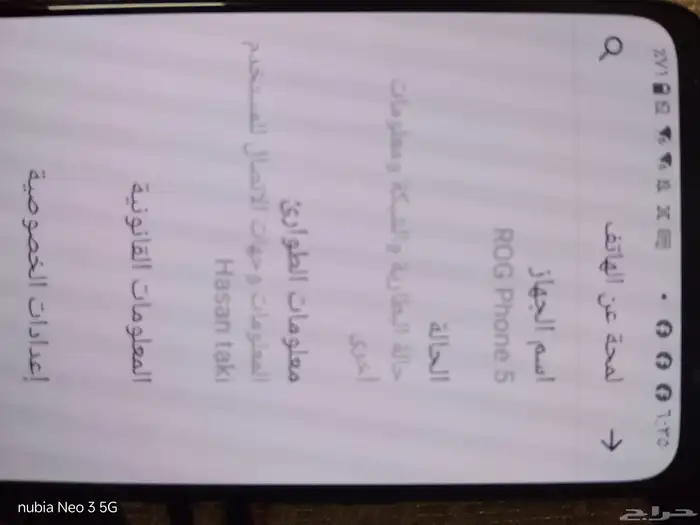 ٦:٣٥
٪٧١
لمحة عن الهاتف
اسم الجهاز
ROG Phone 5
الحالة
حالة البطارية والشبكة ومعلومات
أخرى
معلومات الطوارئ
المعلومات وجهات الاتصال للمستخدم
Hasan taki
المعلومات القانونية
إعدادات الخصوصية
nubia Neo 3 5G
حراج